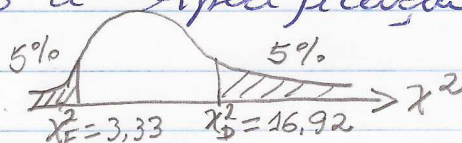 a
5% 5%
χ²
χ²E = 3,33 χ²D = 16,92